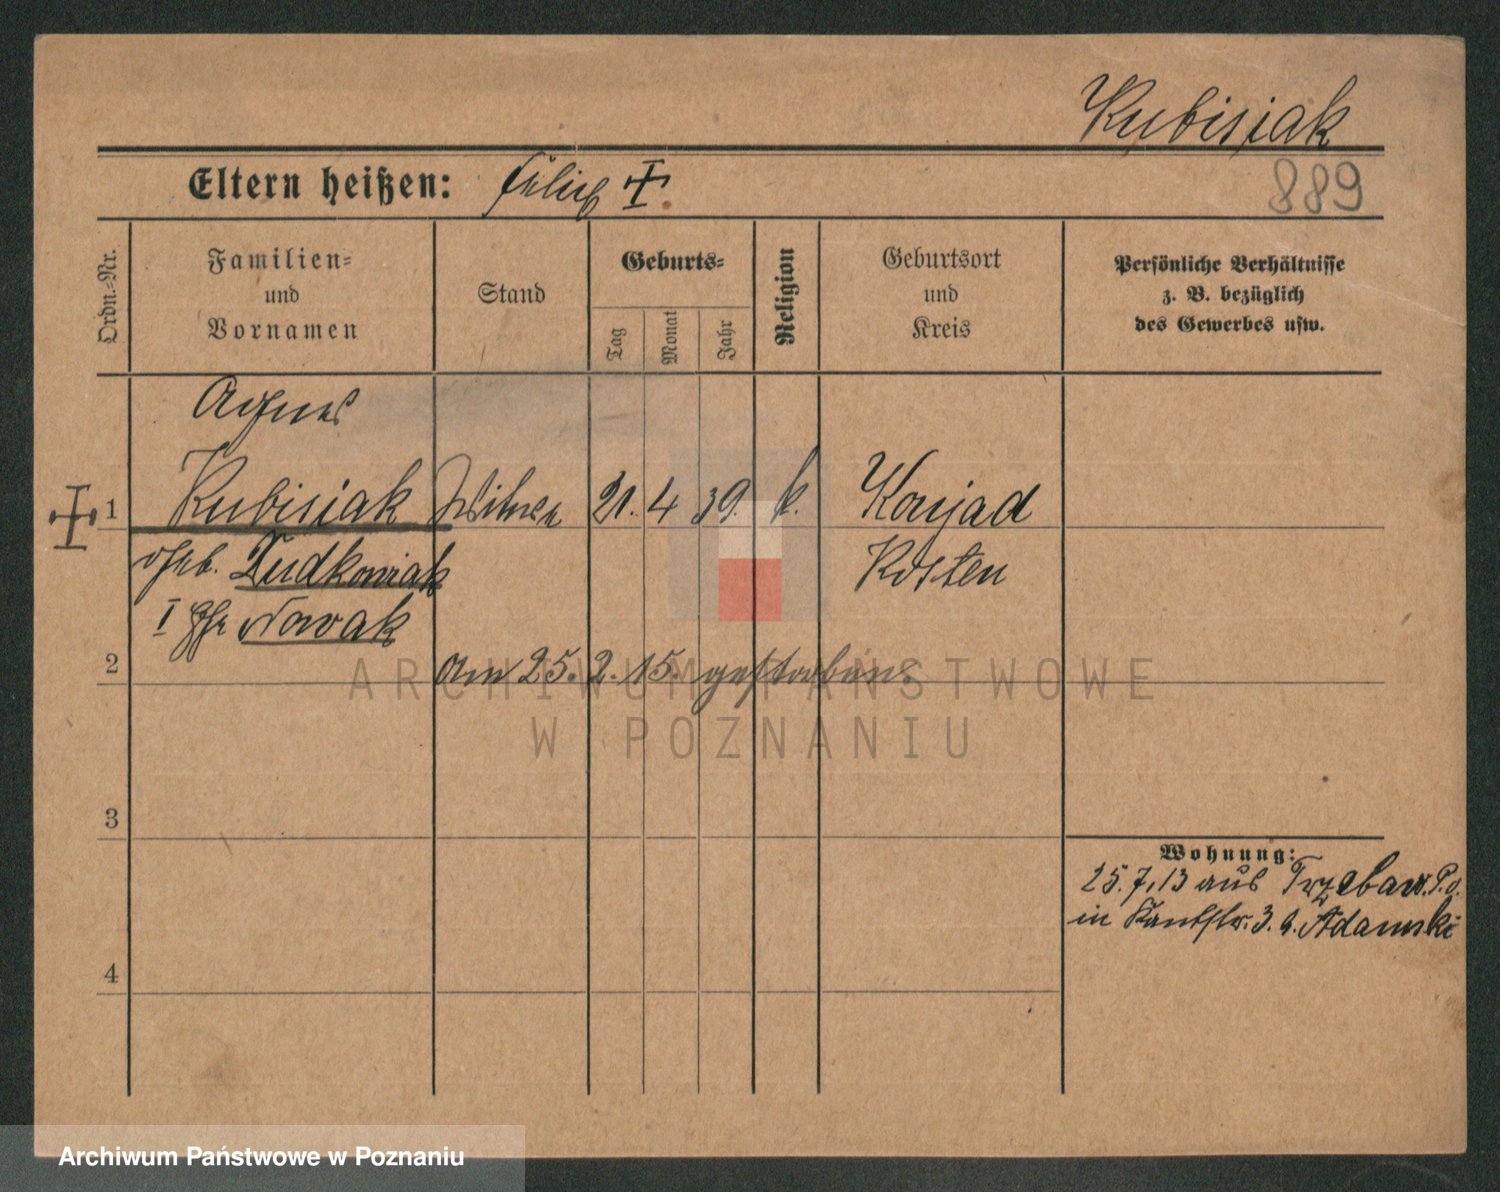 Kubisiak
Eltern heißen: Felix †
889
Ordn.-Nr.
Familien-
und
Vornamen
Stand
Geburts-
Tag
Monat
Jahr
Religion
Geburtsort
und
Kreis
Persönliche Verhältnisse
z. B. bezüglich
des Gewerbes usw.
Agnes
† 1 Kubisiak Witwe 21. 4 39. k. Konjad
geb. Dudkowiak Kosten
I Ehe Nowak
2 am 25. 2. 15. gestorben.
3
Wohnung:
25. 7. 13 aus Trzebaw. P. o.
in Kantstr. 3. b. Adamski
4
ARCHIWUM PAŃSTWOWE
W POZNANIU
Archiwum Państwowe w Poznaniu